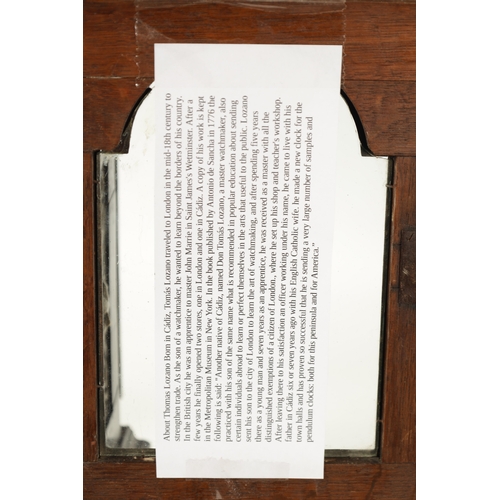 About Thomas Lozano Born in Cádiz, Tomás Lozano traveled to London in the mid-18th century to
strengthen trade. As the son of a watchmaker, he wanted to learn beyond the borders of his country.
In the British city he was an apprentice to master John Marrie in Saint James's Wetminster. After a
few years he finally opened two stores, one in London and one in Cádiz. A copy of his work is kept
in the Metropolitan Museum in New York. In the book published by Antonio de Sancha in 1776 the
following is said: "Another native of Cádiz, named Don Tomás Lozano, a master watchmaker, also
practiced with his son of the same name what is recommended in popular education about sending
certain individuals abroad to learn or perfect themselves in the arts that useful to the public. Lozano
sent his son to the city of London to learn the art of watchmaking, and after spending five years
there as a young man and seven years as an apprentice, he was received as a master with all the
distinguished exemptions of a citizen of London., where he set up his shop and teacher's workshop.
After leaving there to his satisfaction an officer working under his name, he came to live with his
father in Cádiz six or seven years ago with his English Catholic wife. he made a new clock for the
town halls and has proven so successful that he is sending a very large number of samples and
pendulum clocks: both for this peninsula and for America."